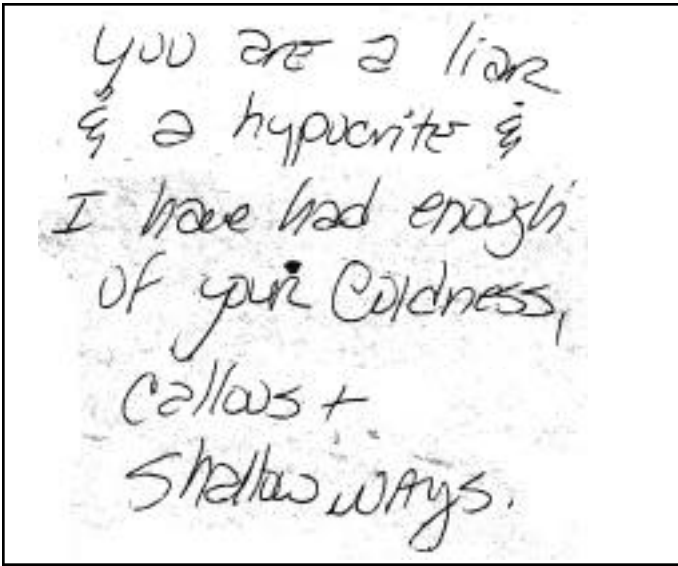 you are a liar
& a hypocrite &
I have had enough
of your Coldness,
Callous +
Shallow ways.